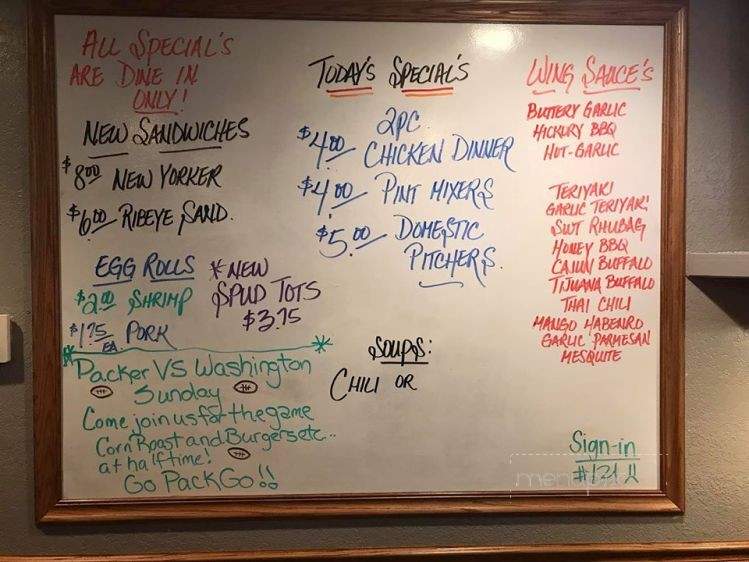 ALL SPECIAL'S
ARE DINE IN
ONLY!
NEW SANDWICHES
$8.00 NEW YORKER
$6.00 RIBEYE SAND.
EGG ROLLS
$2.00 SHRIMP
$1.75 EA. PORK
*NEW
SPUD TOTS
$3.75
Packer VS Washington
Sunday
Come join us for the game
Corn Roast and Burgers etc..
at halftime!
Go Pack Go!!
TODAY'S SPECIAL'S
2PC
$4.00 CHICKEN DINNER
$4.00 PINT MIXERS
$5.00 DOMESTIC
PITCHERS
SOUPS:
CHILI OR
WING SAUCE'S
BUTTERY GARLIC
HICKORY BBQ
HOT-GARLIC
TERIYAKI
GARLIC TERIYAKI
SWT RHUBAG
HONEY BBQ
CAJUN BUFFALO
TIJUANA BUFFALO
THAI CHILI
MANGO HABENRO
GARLIC PARMESAN
MESQUITE
Sign-in